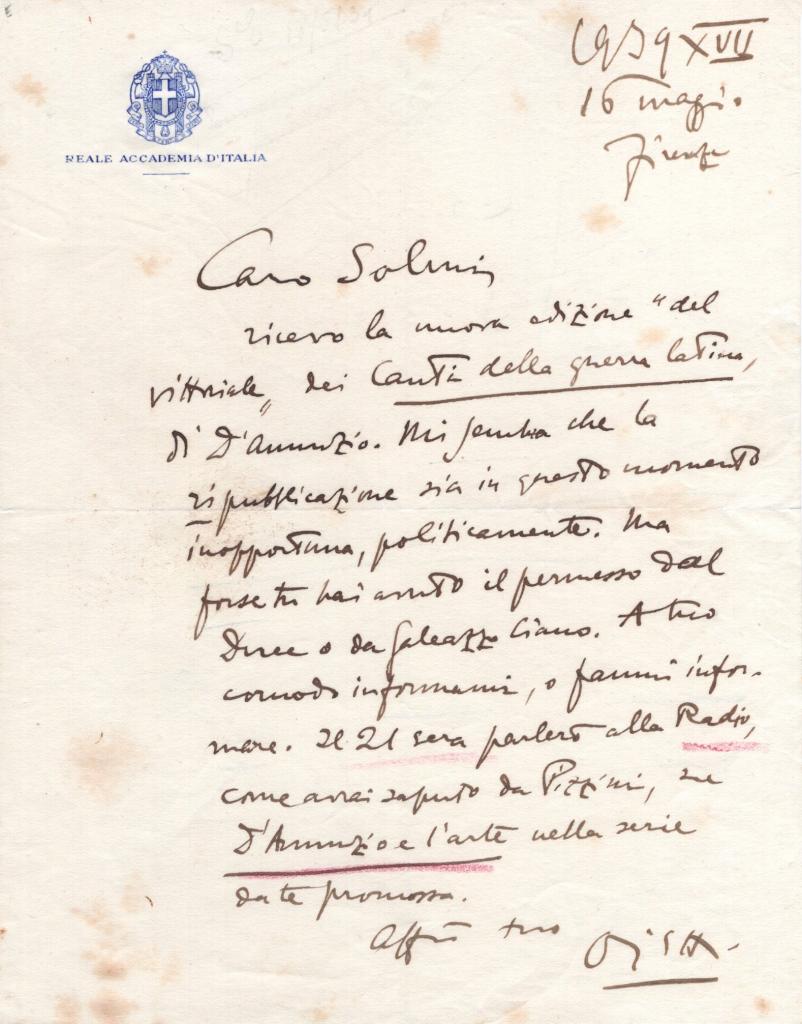 1939 XVII
16 maggio
Firenze
REALE ACCADEMIA D'ITALIA
Caro Solmi,
ricevo la nuova edizione "del
Vittoriale" dei Canti della guerra latina,
di D'Annunzio. Mi sembra che la
ripubblicazione sia in questo momento
inopportuna, politicamente. Ma
forse tu hai avuto il permesso dal
Duce o da Galeazzo Ciano. A tuo
comodo informami, o fammi infor-
mare. Il 21 sera parlerò alla Radio,
come avrai saputo da Pizzini, su
D'Annunzio e l'arte nella serie
da te promossa.
Aff.mo tuo
Ojetti